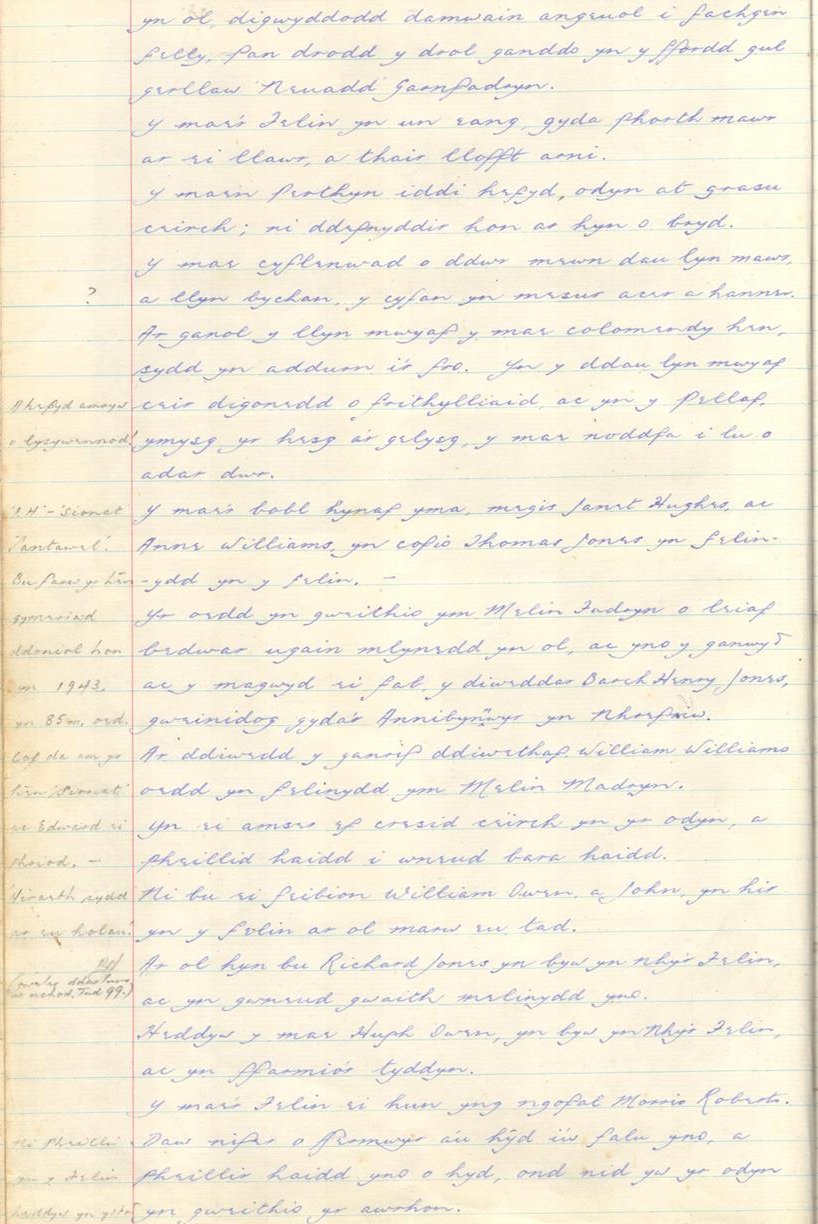 yn ol, digwyddodd damwain angeuol i fachgen
felly, pan drodd y drol ganddo yn y ffordd gul
gerllaw 'Neuadd' Garnfadryn.
Y mae'r Felin yn un eang, gyda phorth mawr
ar ei llawr, a thair llofft arni.
Y mae'n perthyn iddi hefyd, odyn at grasu
ceirch; ni ddefnyddir hon ar hyn o bryd.
Y mae cyflenwad o ddwr mewn dau lyn mawr,
?
a llyn bychan, y cyfan yn mesur acer a hanner.
Ar ganol y llyn mwyaf y mae colomendy hen,
sydd yn addurn i'r fro. Yn y ddau lyn mwyaf
A hefyd amryw
ceir digonedd o frithylliaid, ac yn y pellaf,
o lysywennod!
ymysg yr hesg a'r gelysg, y mae noddfa i lu o
adar dwr.
'J.H' - 'Sionat
Y mae'r bobl hynaf yma, megis Janet Hughes, ac
Pantawel'.
Anne Williams, yn cofio Thomas Jones yn felin-
Bu farw yr hên
-ydd yn y felin. -
gymeriad
Yr oedd yn gweithio ym Melin Fadryn o leiaf
ddoniol hon
bedwar ugain mlynedd yn ol, ac yno y ganwyd
yn 1943,
ac y magwyd ei fab, y diweddar Barch Henry Jones,
yn 85 m. oed.
gweinidog gyda'r Annibynwyr yn Nhrefriw.
Cof da am yr
Ar ddiwedd y ganrif ddiwethaf, William Williams
hên 'Sionat'
oedd yn felinydd ym Melin Madryn.
ac Edward ei
Yn ei amser ef cresid ceirch yn yr odyn, a
phriod. -
pheillid haidd i wneud bara haidd.
Hiraeth sydd
Ni bu ei feibion William Owen, a John, yn hir
ar eu holau!
yn y felin ar ol marw eu tad.
Ar ol hyn bu Richard Jones yn byw yn Nhy'r Felin,
ac yn gwneud gwaith melinydd yno.
Heddyw y mae Hugh Owen, yn byw yn Nhy'r Felin,
ac yn ffarmio'r tyddyn.
Y mae'r Felin ei hun yng ngofal Morris Roberts.
Ni pheillir
Daw nifer o ffermwyr a'u hŷd i'w falu yno, a
yn y Felin
pheillir haidd yno o hyd, ond nid yw yr odyn
heddyw yn
yn gweithio yr awrhon.